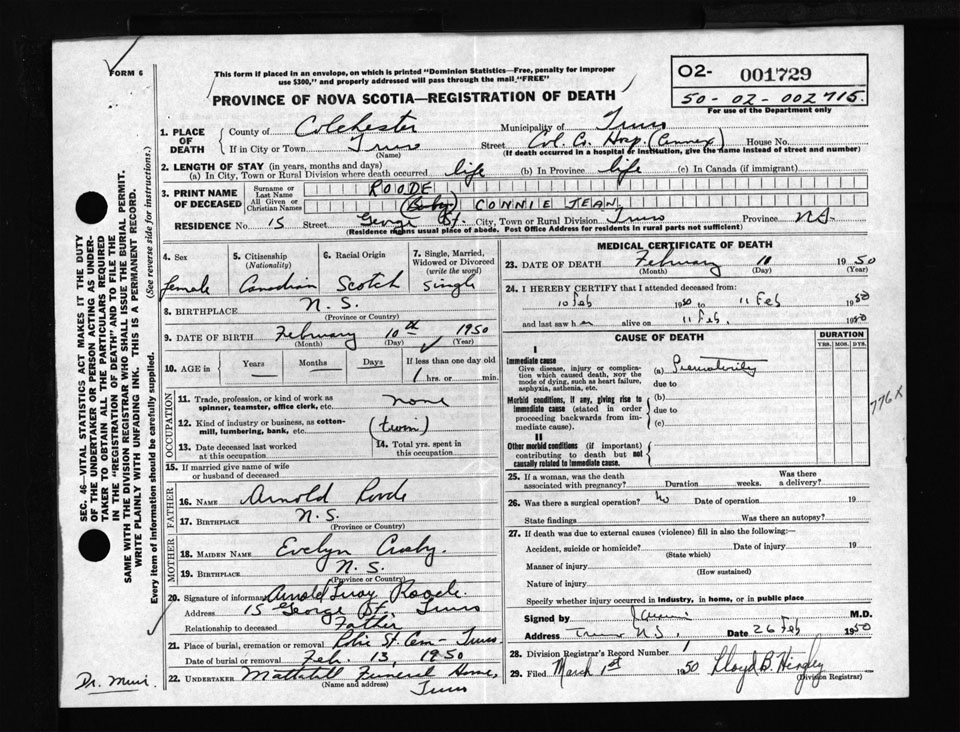 FORM 6
This form if placed in an envelope, on which is printed "Dominion Statistics—Free, penalty for improper
use $300," and properly addressed will pass through the mail "FREE"
PROVINCE OF NOVA SCOTIA—REGISTRATION OF DEATH
O2- 001729
50-02-002715.
For use of the Department only
1. PLACE OF DEATH
County of Colchester Municipality of Truro
If in City or Town Truro (Name) Street Col. Co. Hosp. (Annex) House No.
(If death occurred in a hospital or institution, give the name instead of street and number)
2. LENGTH OF STAY (in years, months and days)
(a) In City, Town or Rural Division where death occurred life (b) In Province life (c) In Canada (if immigrant)
3. PRINT NAME OF DECEASED
Surname or Last Name ROODE
All Given or Christian Names (Baby) CONNIE JEAN
RESIDENCE No. 15 Street George St. City, Town or Rural Division Truro Province N.S.
(Residence means usual place of abode. Post Office Address for residents in rural parts not sufficient)
4. Sex
female
5. Citizenship (Nationality)
Canadian
6. Racial Origin
Scotch
7. Single, Married, Widowed or Divorced (write the word)
single
8. BIRTHPLACE N.S.
(Province or Country)
9. DATE OF BIRTH February 10th 1950
(Month) (Day) (Year)
10. AGE in Years — Months — Days — If less than one day old
1 hrs. or min.
OCCUPATION
11. Trade, profession, or kind of work as spinner, teamster, office clerk, etc. none
12. Kind of industry or business, as cotton-mill, lumbering, bank, etc. (twin)
13. Date deceased last worked at this occupation
14. Total yrs. spent in this occupation
15. If married give name of wife or husband of deceased
FATHER
16. NAME Arnold Roode
17. BIRTHPLACE N.S.
(Province or Country)
MOTHER
18. MAIDEN NAME Evelyn Crosby.
19. BIRTHPLACE N.S.
(Province or Country)
20. Signature of informant Arnold Leroy Roode.
Address 15 George St. Truro
Relationship to deceased Father
21. Place of burial, cremation or removal Robie St. Cem- Truro.
Date of burial or removal Feb. 13, 1950
22. UNDERTAKER Mattatall Funeral Home,
(Name and address) Truro
MEDICAL CERTIFICATE OF DEATH
23. DATE OF DEATH February 10 1950
(Month) (Day) (Year)
24. I HEREBY CERTIFY that I attended deceased from:
10 Feb 1950 to 11 Feb 1950
and last saw her alive on 11 Feb. 1950
CAUSE OF DEATH
DURATION
YRS. MOS. DYS.
I
Immediate cause
Give disease, injury or complication which caused death, NOT the mode of dying, such as heart failure, asphyxia, asthenia, etc.
(a) Prematurity
due to
Morbid conditions, if any, giving rise to immediate cause (stated in order proceeding backwards from immediate cause).
(b)
due to
(c)
776X
II
Other morbid conditions (if important) contributing to death but not causally related to immediate cause.
25. If a woman, was the death associated with pregnancy? Duration weeks. Was there a delivery?
26. Was there a surgical operation? no Date of operation 19
State findings Was there an autopsy?
27. If death was due to external causes (violence) fill in also the following:—
Accident, suicide or homicide? Date of injury 19
(State which)
Manner of injury
(How sustained)
Nature of injury
Specify whether injury occurred in industry, in home, or in public place
Signed by M.D.
Address Truro N.S. Date 26 Feb 1950
28. Division Registrar's Record Number 1
29. Filed March 1st 1950 Lloyd B. Hingley
(Division Registrar)
SEC. 46—VITAL STATISTICS ACT MAKES IT THE DUTY
OF THE UNDERTAKER OR PERSON ACTING AS UNDER-
TAKER TO OBTAIN ALL THE PARTICULARS REQUIRED
IN THE "REGISTRATION OF DEATH" AND TO FILE THE
SAME WITH THE DIVISION REGISTRAR WHO SHALL ISSUE THE BURIAL PERMIT.
WRITE PLAINLY WITH UNFADING INK. THIS IS A PERMANENT RECORD.
Every item of information should be carefully supplied. (See reverse side for instructions.)
Dr. Muir.